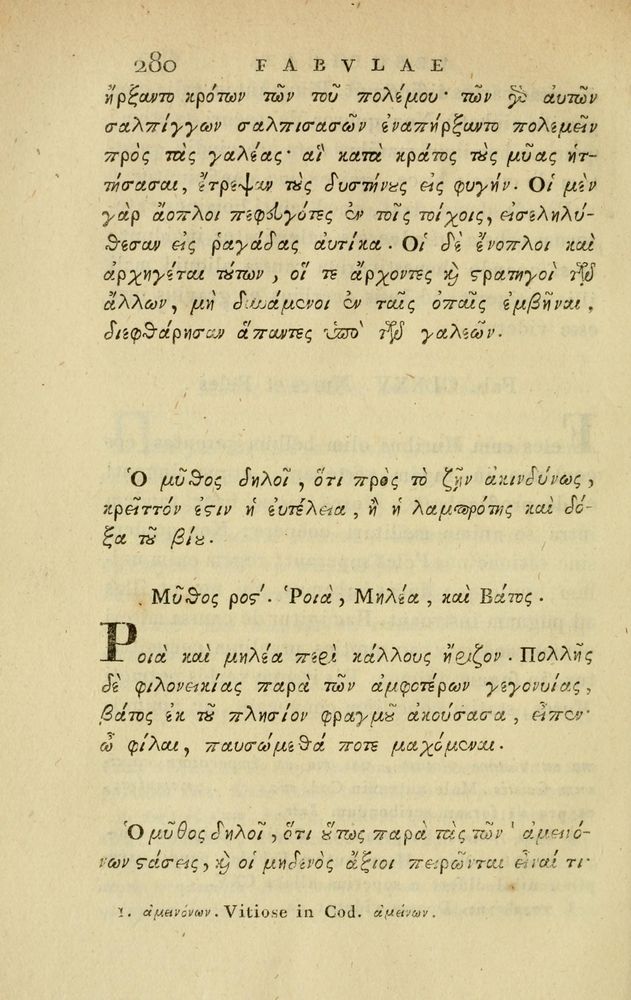 280 FABVLAE
ἤρξαντο κρότων τῶν τοῦ πολέμου· τῶν δὲ αὐτῶν
σαλπίγγων σαλπισασῶν ἐναπήρξαντο πολεμεῖν
πρὸς τὰς γαλέας· αἳ κατὰ κράτος τοὺς μῦας ἡτ-
τήσασαι, ἔτρεψαν τοὺς δυστήνους εἰς φυγήν. Οἱ μὲν
γὰρ ἄοπλοι πεφευγότες ἐν τοῖς τοίχοις, εἰσεληλύ-
θεσαν εἰς ῥαγάδας αὐτίκα. Οἱ δὲ ἔνοπλοι καὶ
ἀρχηγέται τούτων, οἵ τε ἄρχοντες καὶ στρατηγοὶ τῶν
ἄλλων, μὴ δυνάμενοι ἐν ταῖς ὀπαῖς ἐμβῆναι,
διεφθάρησαν ἅπαντες ὑπὸ τῶν γαλεῶν.
Ὁ μῦθος δηλοῖ, ὅτι πρὸς τὸ ζῆν ἀκινδύνως,
κρεῖττόν ἐστιν ἡ εὐτέλεια, ἢ ἡ λαμπρότης καὶ δό-
ξα τοῦ βίου.
Μῦθος ροϛ'. Ῥοιὰ, Μηλέα, καὶ Βάτος.
Ῥοιὰ καὶ μηλέα περὶ κάλλους ἤριζον. Πολλῆς
δὲ φιλονεικίας παρὰ τῶν ἀμφοτέρων γεγονυίας,
βάτος ἐκ τοῦ πλησίον φραγμοῦ ἀκούσασα, εἶπεν·
ὦ φίλαι, παυσώμεθά ποτε μαχόμεναι.
Ὁ μῦθος δηλοῖ, ὅτι οὕτως παρὰ τὰς τῶν ¹ ἀμεινό-
νων στάσεις, καὶ οἱ μηδενὸς ἄξιοι πειρῶνται εἶναί τι·
1. ἀμεινόνων. Vitiose in Cod. ἀμείνων.